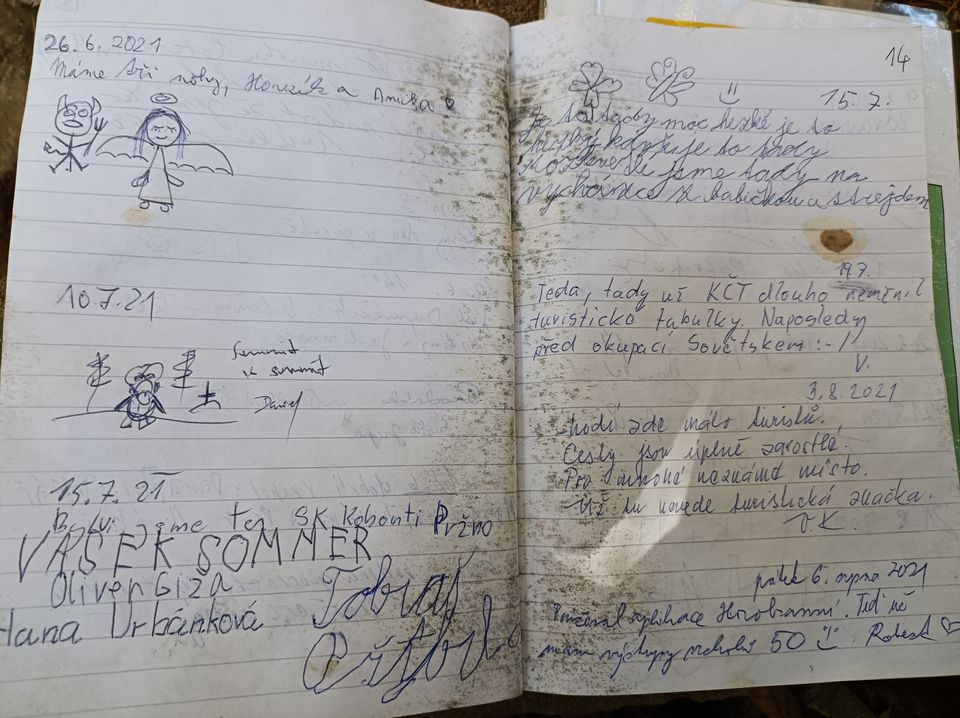 26.6.2021
Máme tři nohy, Honzík a Anička
10.7.21
Summit
k summit
Daniel
15.7.21
Byli jsme tu SK Kohouti Pržno
VAŠEK SOMMER
Oliver Giža
Hana Urbánková
Tobiaš
14
15.7.
Je to tady moc hezké je to
hezký když je to tady
rozkvetlé jsme tady na
vycházce z babičkou a strejdem
19.7.
Teda, tady už KČT dlouho neměnil
turistické tabulky. Naposledy
před okupací Sovětskem :-/
V.
3.8.2021
Chodí zde málo turistů.
Cesty jsou úplně zarostlé.
Pro mnohé neznámé místo.
Už tu nevede turistická značka.
V.K.
pátek 6. srpna 2021
aplikace Horobraní. Teď už
mám výstupy vrcholů 50 Robert